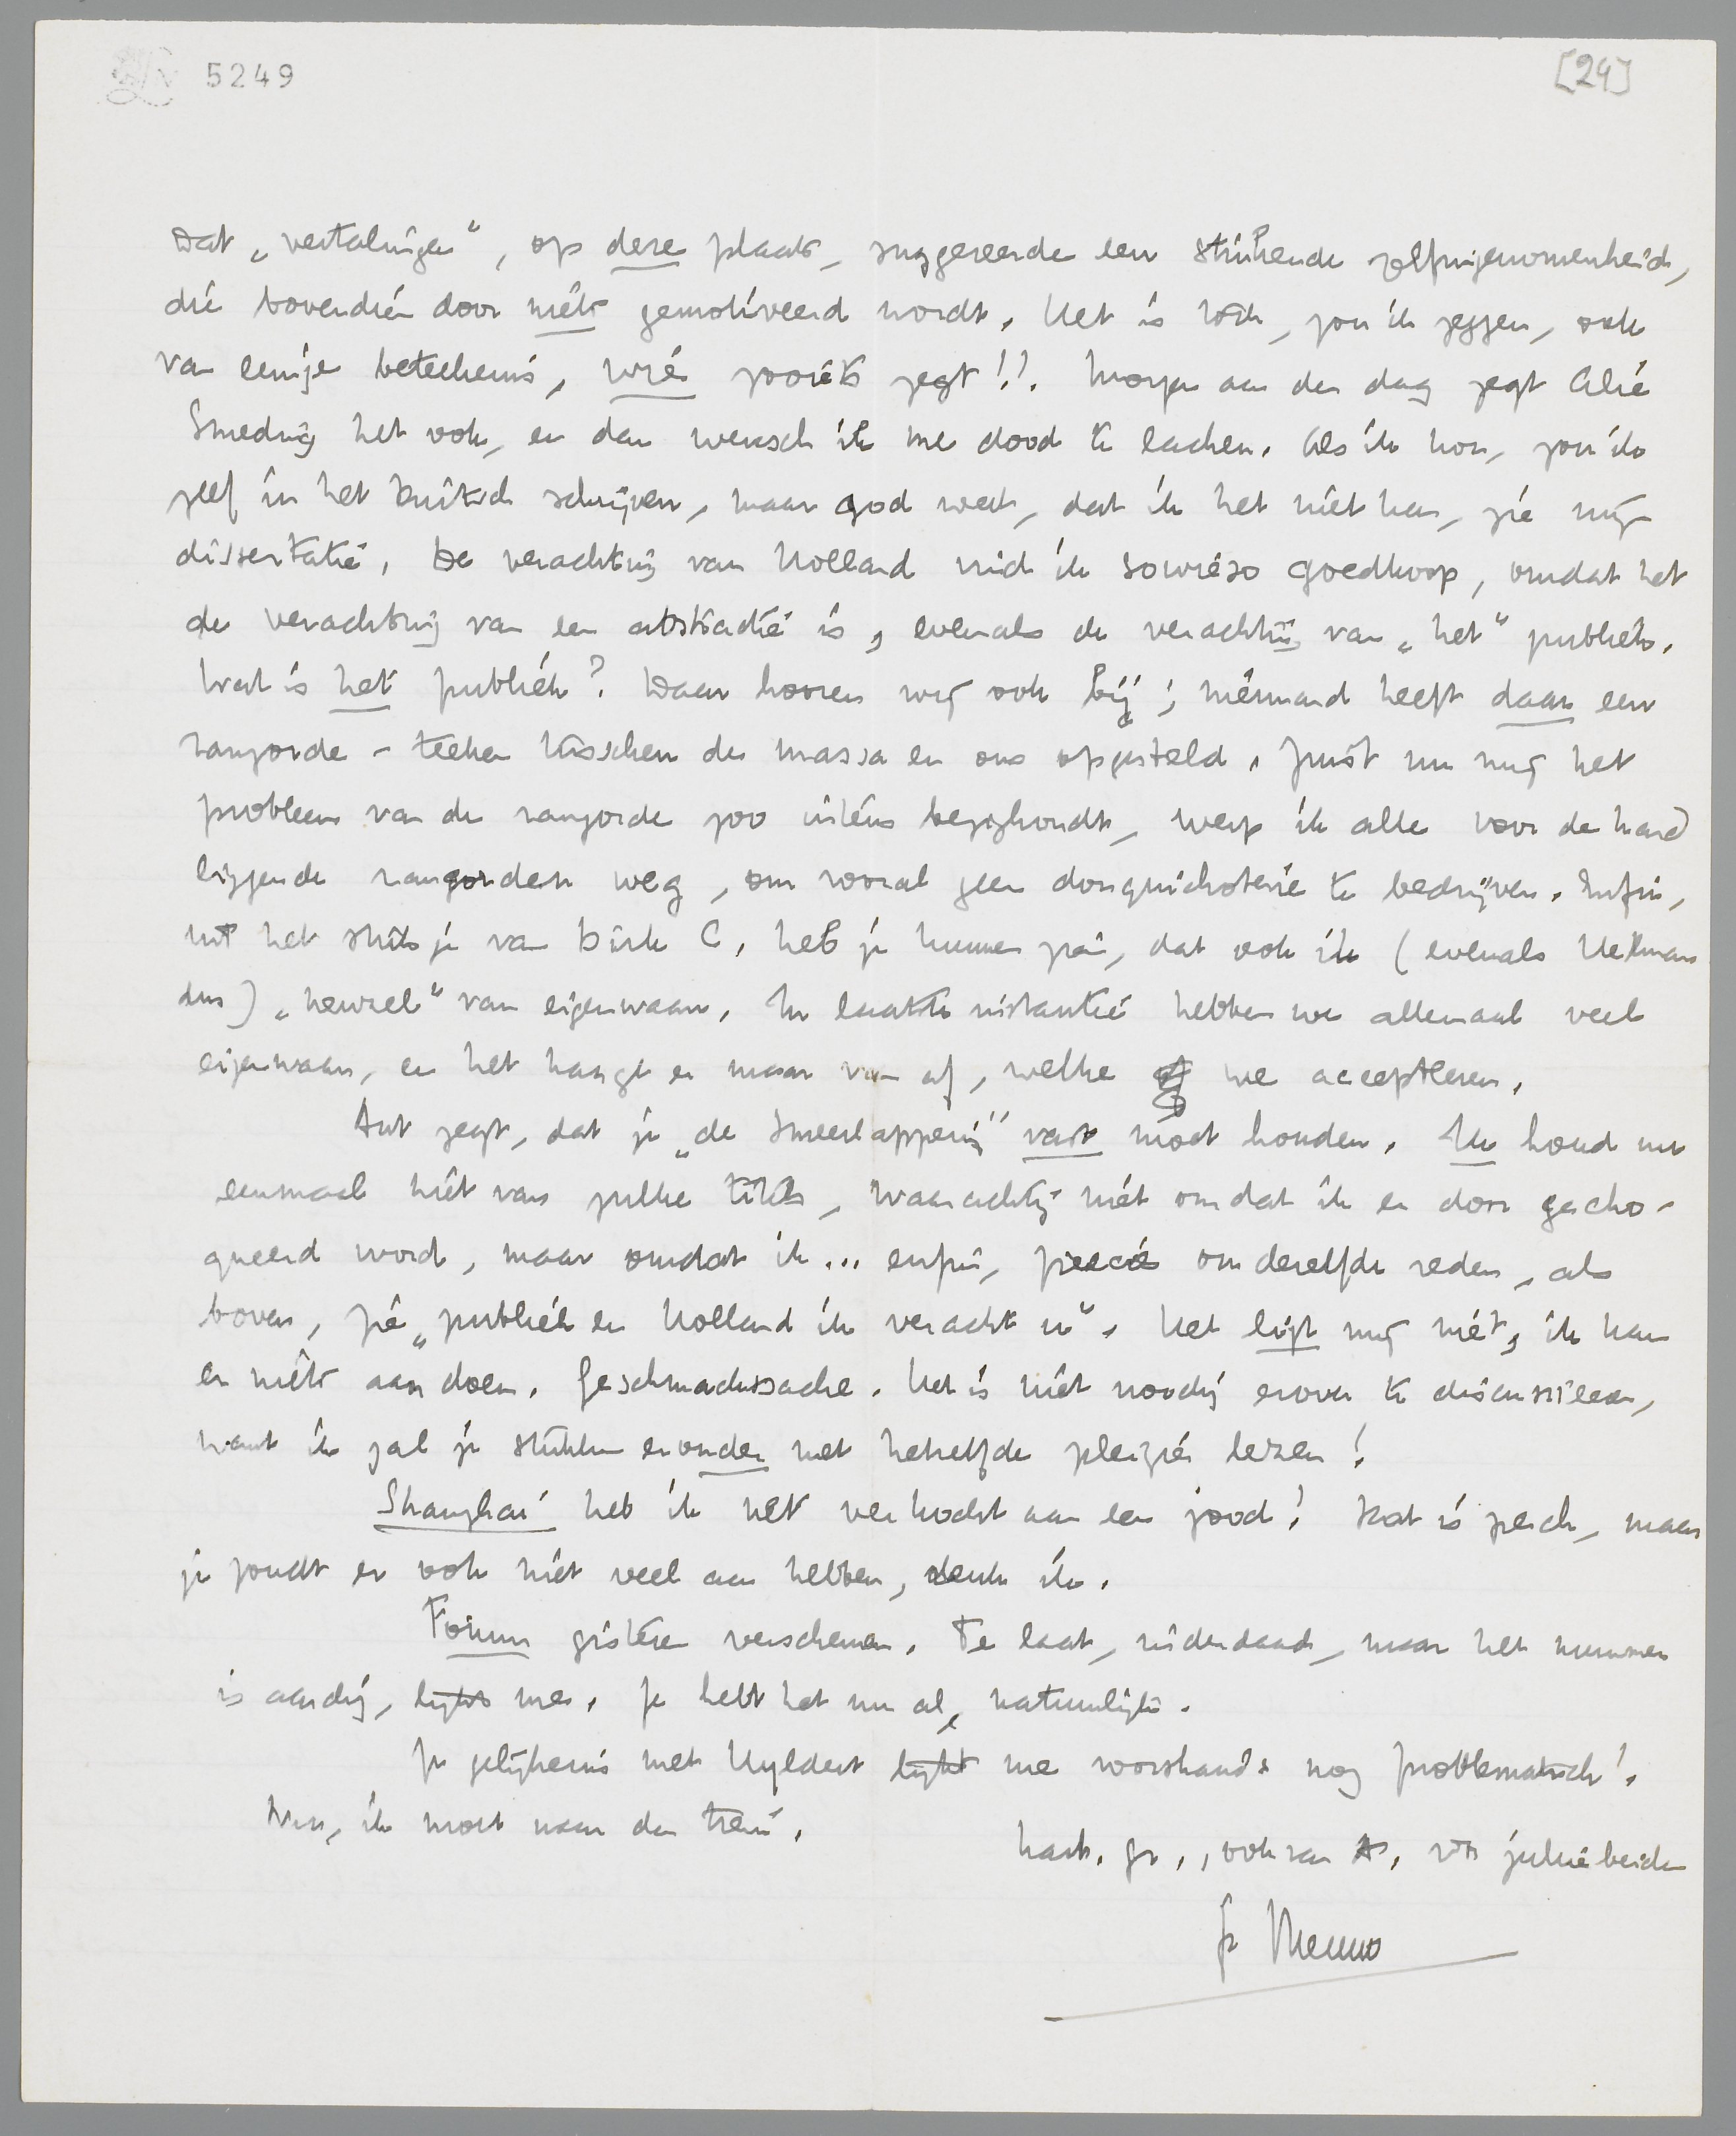 5249
[24]
Dat „vertalingen”, op deze plaats, suggereerde een stuitende zelfingenomenheid,
die bovendien door niets gemotiveerd wordt. Het is toch, zou ik zeggen, ook
van eenige beteekenis, wie zooiets zegt!! Morgen aan den dag zegt Alie
Smeding het ook, en dan wensch ik me dood te lachen. Als ik kon, zou ik
zelf in het Duitsch schrijven, maar god weet, dat ik het niet kan, zie mijn
dissertatie. De verachting van Holland vind ik sowieso goedkoop, omdat het
de verachting van een abstractie is, evenals de verachting van „het” publiek.
Wat is het publiek? Daar hooren wij ook bij; niemand heeft daar een
rangorde-teeken tusschen de massa en ons opgesteld. Juist nu mij het
probleem van de rangorde zoo intens bezighoudt, werp ik alle voor de hand
liggende rangorden weg, om vooral geen donquichoterie te bedrijven. Enfin,
uit het stukje van Dirk C. heb je kunnen zien, dat ook ik (evenals Helman
dus) „kewzel” van eigenwaan. In laatste instantie hebben we allemaal veel
eigenwaan, en het hangt er maar van af, welke we accepteeren.
Ant zegt, dat je „de smeerlapperij” vast moet houden. Ik houd nu
eenmaal niet van zulke titels, waarachtig niet omdat ik er door gecho-
queerd word, maar omdat ik... enfin, precies om dezelfde reden, als
boven, zie „publiek en Holland ik veracht u”. Het ligt mij niet, ik kan
er niets aan doen. Geschmackssache. Het is niet noodig erover te discussieeren,
want ik zal je stukken eronder met hetzelfde pleizier lezen!
Shanghai heb ik net verkocht aan een jood! Dat is pech, maar
je zoudt er ook niet veel aan hebben, denk ik.
Forum gisteren verschenen. Te laat, inderdaad, maar het nummer
is aardig, lijkt me. Je hebt het nu al, natuurlijk.
Je gelijkenis met Uyldert lijkt me voorshands nog problematisch!
Nu, ik moet naar den trein.
hart. gr., ook van A, vr jullie beiden
je Menno